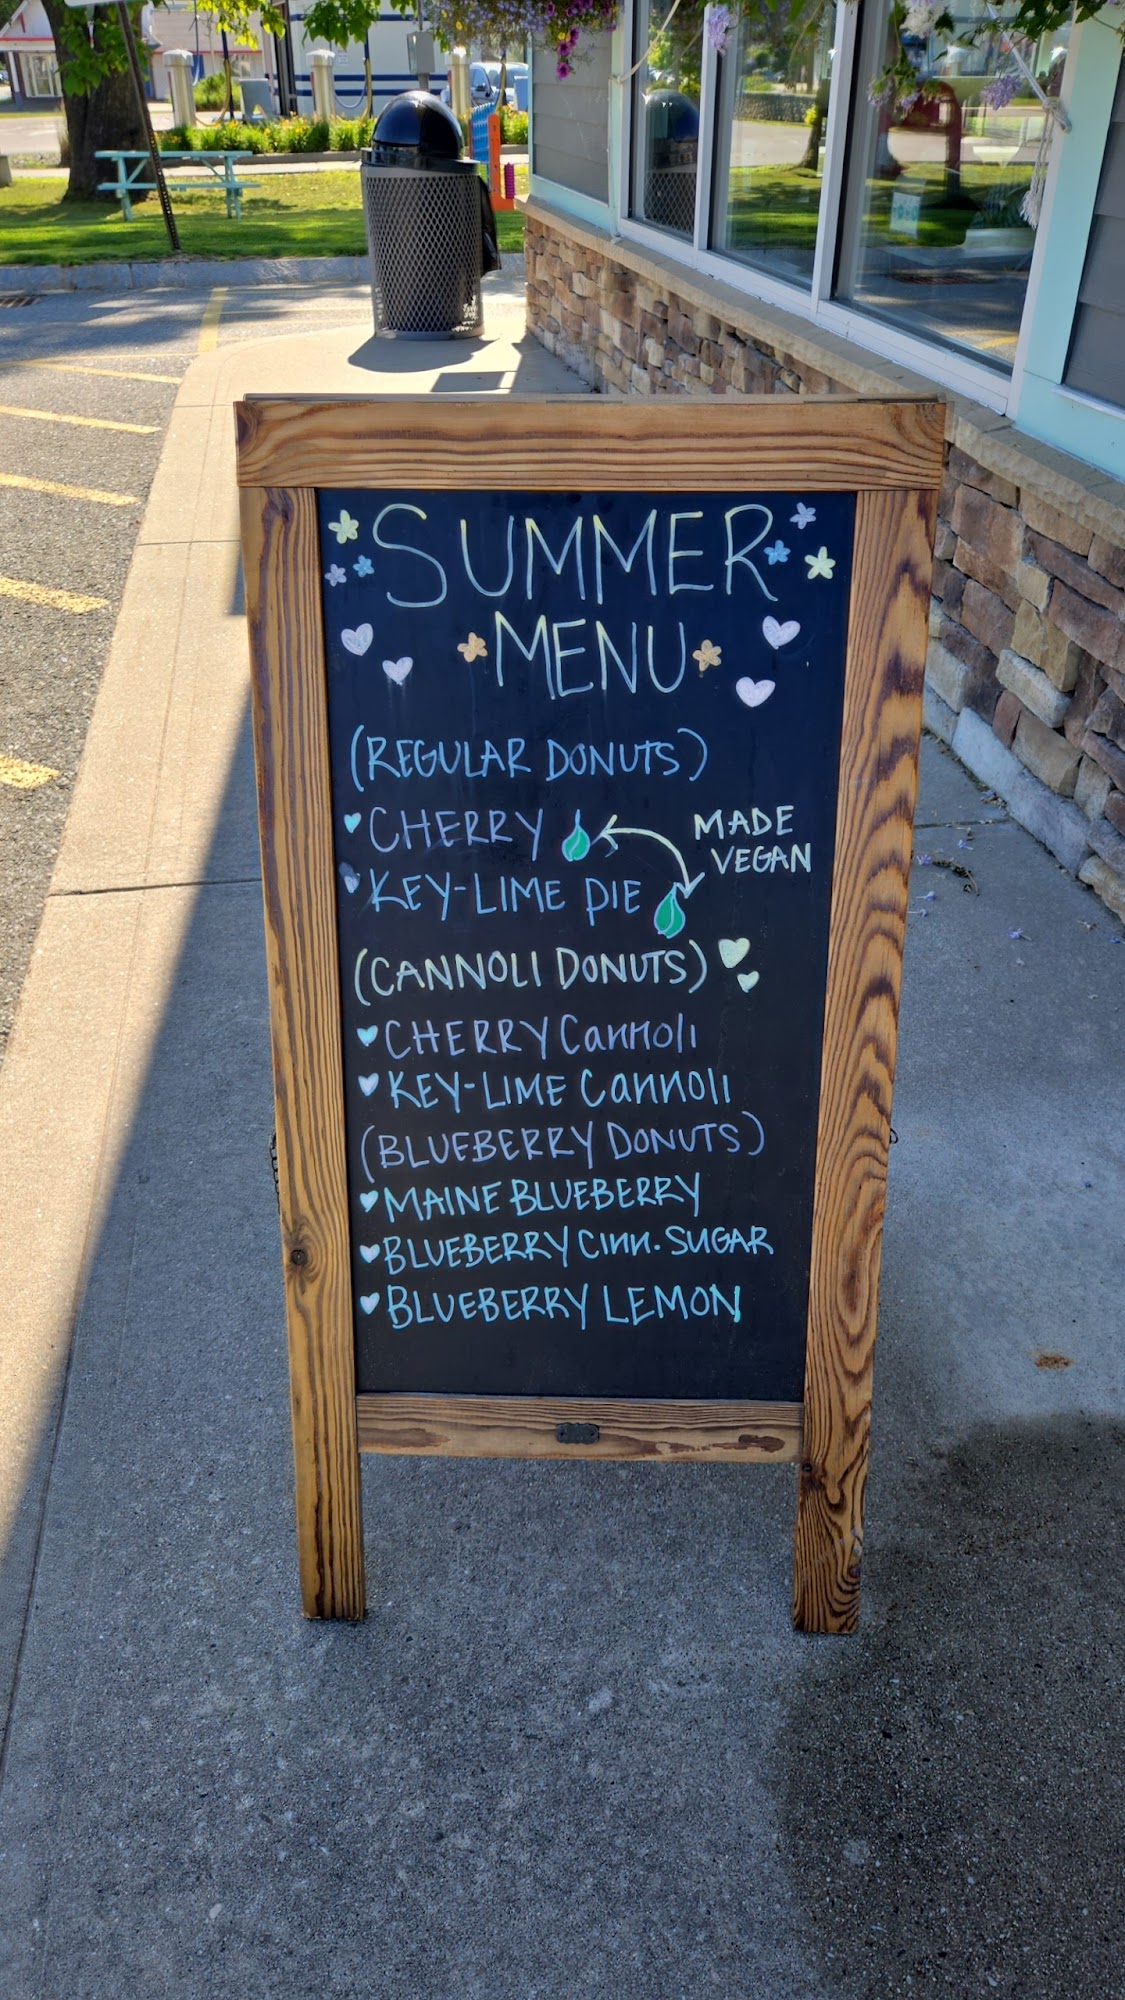 SUMMER
MENU
(REGULAR DONUTS)
CHERRY
MADE
VEGAN
KEY-LIME PIE
(CANNOLI DONUTS)
CHERRY Cannoli
KEY-LIME Cannoli
(BLUEBERRY DONUTS)
MAINE BLUEBERRY
BLUEBERRY Cinn. SUGAR
BLUEBERRY LEMON